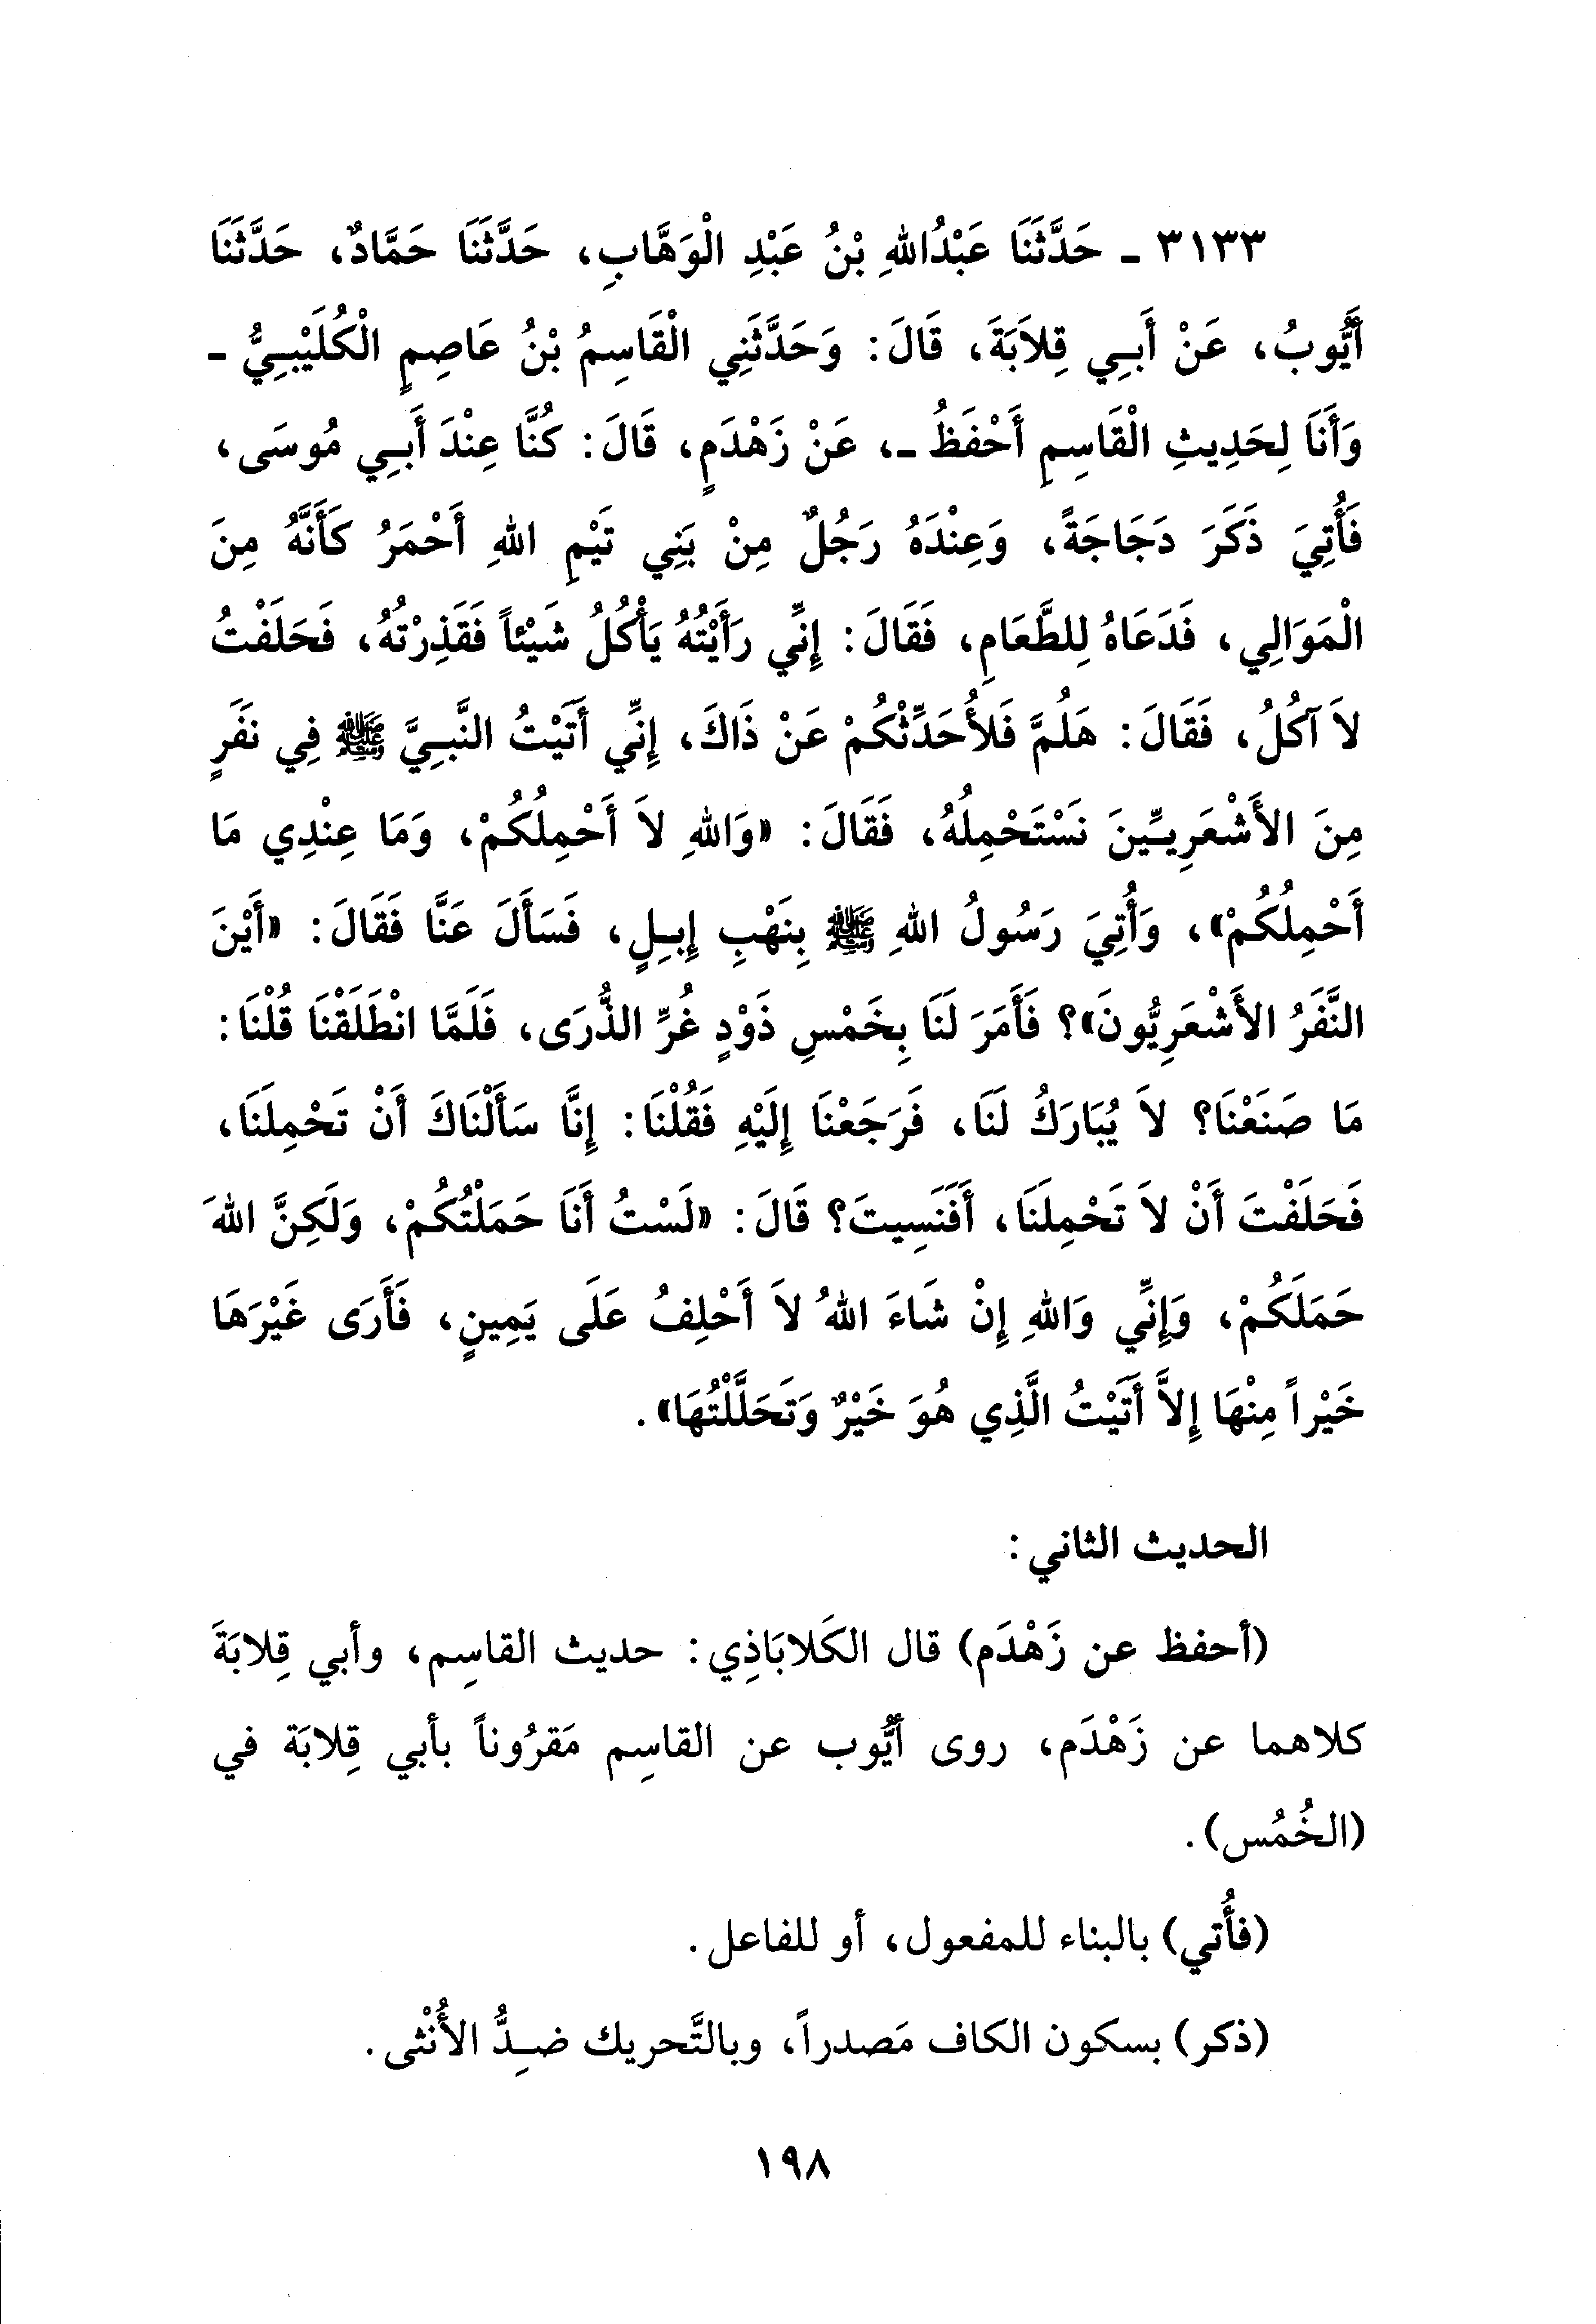 ٣١٣٣ - حَدَّثَنَا عَبْدُاللهِ بْنُ عَبْدِ الْوَهَّابِ، حَدَّثَنَا حَمَّادٌ، حَدَّثَنَا
أَيُّوبُ، عَنْ أَبِي قِلاَبَةَ، قَالَ: وَحَدَّثَنِي الْقَاسِمُ بْنُ عَاصِمٍ الْكُلَيْبِيُّ -
وَأَنَا لِحَدِيثِ الْقَاسِمِ أَحْفَظُ -، عَنْ زَهْدَمٍ، قَالَ: كُنَّا عِنْدَ أَبِي مُوسَى،
فَأُتِيَ ذَكَرَ دَجَاجَةً، وَعِنْدَهُ رَجُلٌ مِنْ بَنِي تَيْمِ اللهِ أَحْمَرُ كَأَنَّهُ مِنَ
الْمَوَالِي، فَدَعَاهُ لِلطَّعَامِ، فَقَالَ: إِنِّي رَأَيْتُهُ يَأْكُلُ شَيْئاً فَقَذِرْتهُ، فَحَلَفْتُ
لاَ آكُلُ، فَقَالَ: هَلُمَّ فَلأُحَدِّثْكُمْ عَنْ ذَاكَ، إِنِّي أَتَيْتُ النَّبِيَّ ﷺ فِي نفَرٍ
مِنَ الأَشْعَرِيِّينَ نَسْتَحْمِلُهُ، فَقَالَ: «وَاللهِ لاَ أَحْمِلُكُمْ، وَمَا عِنْدِي مَا
أَحْمِلُكُمْ»، وَأُتِيَ رَسُولُ اللهِ ﷺ بِنَهْبِ إِبِلٍ، فَسَأَلَ عَنَّا فَقَالَ: «أَيْنَ
النَّفَرُ الأَشْعَرِيُّونَ»؟ فَأَمَرَ لَنَا بِخَمْسِ ذَوْدٍ غُرِّ الذُّرَى، فَلَمَّا انْطَلَقْنَا قُلْنَا:
مَا صَنَعْنَا؟ لاَ يُبَارَكُ لَنَا، فَرَجَعْنَا إِلَيْهِ فَقُلْنَا: إِنَّا سَأَلْنَاكَ أَنْ تَحْمِلَنَا،
فَحَلَفْتَ أَنْ لاَ تَحْمِلَنَا، أَفَنَسِيتَ؟ قَالَ: «لَسْتُ أَنَا حَمَلْتُكُمْ، وَلَكِنَّ اللهَ
حَمَلَكُمْ، وَإِنِّي وَاللهِ إِنْ شَاءَ اللهُ لاَ أَحْلِفُ عَلَى يَمِينٍ، فَأَرَى غَيْرَهَا
خَيْراً مِنْهَا إِلاَّ أَتَيْتُ الَّذِي هُوَ خَيْرٌ وَتَحَلَّلْتُهَا».
الحديث الثاني:
(أحفظ عن زَهْدَم) قال الكَلابَاذِي: حديث القاسِم، وأبي قِلابَةَ
كلاهما عن زَهْدَم، روى أيُّوب عن القاسِم مَقرُوناً بأبي قِلابَة في
(الخُمُس).
(فأُتي) بالبناء للمفعول، أو للفاعل.
(ذكر) بسكون الكاف مَصدراً، وبالتَّحريك ضِدُّ الأُنْثى.
١٩٨